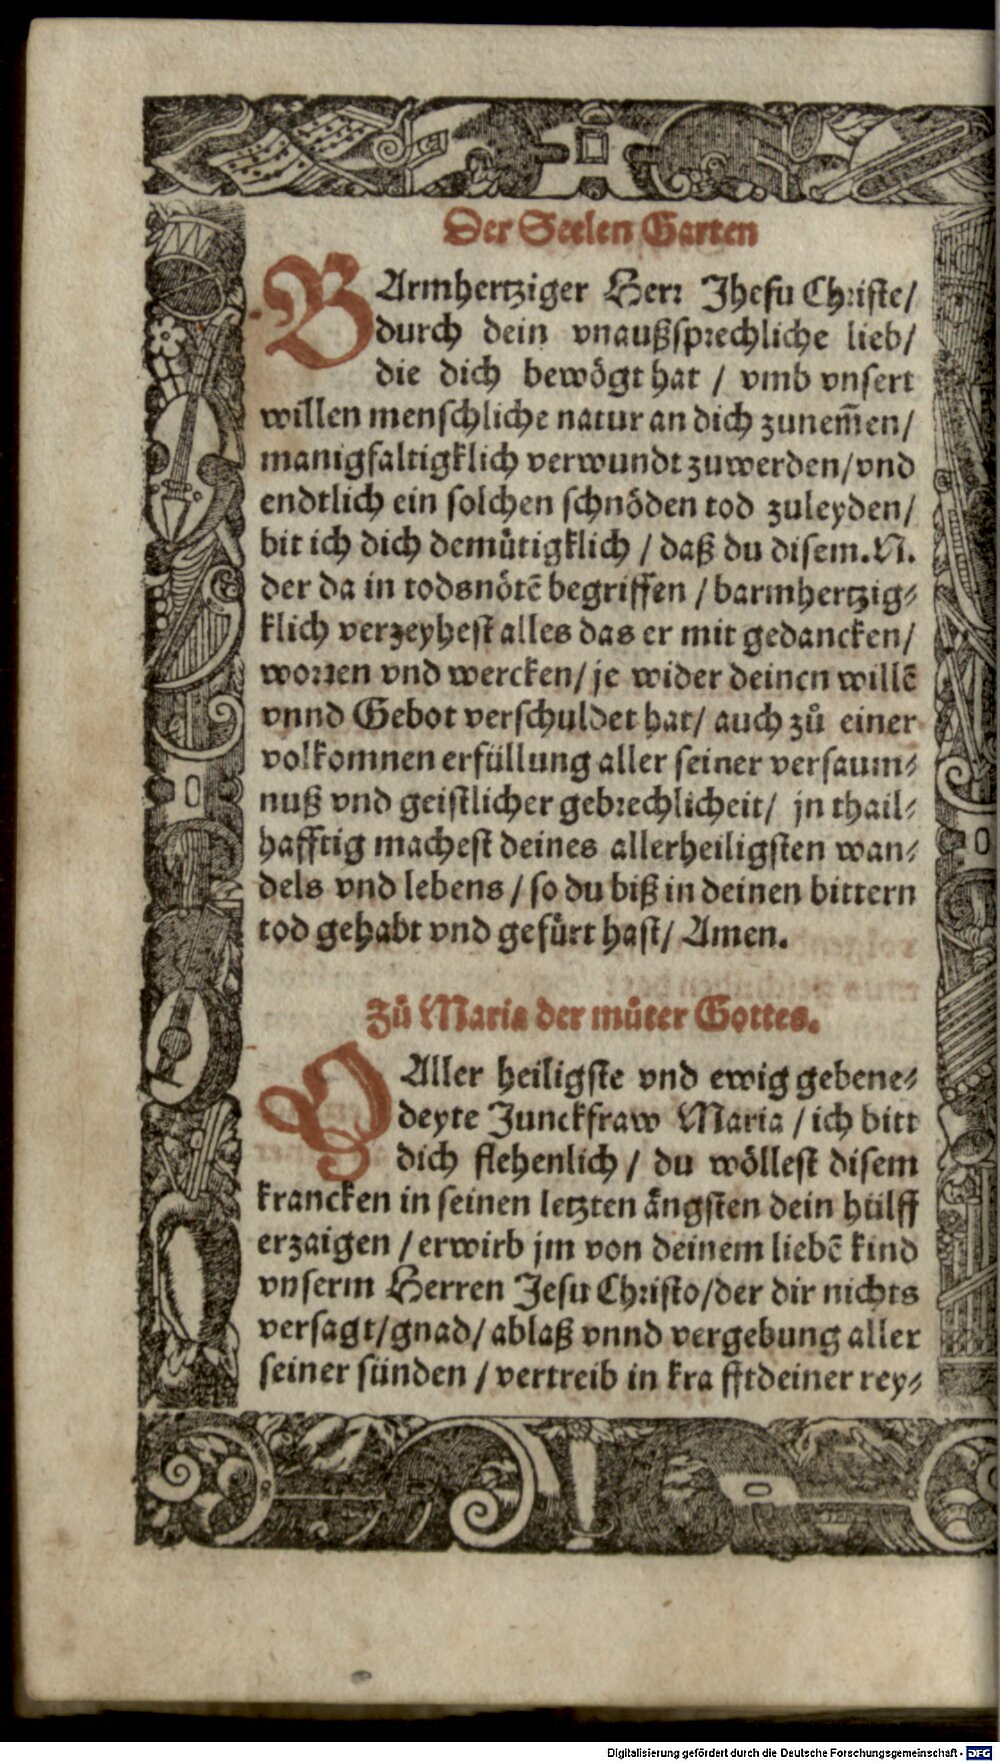 Der Seelen Garten
BArmhertziger Herr Jhesu Christe/
durch dein vnaußsprechliche lieb/
die dich bewögt hat / vmb vnsert
willen menschliche natur an dich zunem̃en/
manigfaltigklich verwundt zuwerden/vnd
endtlich ein solchen schnöden tod zuleyden/
bit ich dich demuͤtigklich / daß du disem.N.
der da in todsnötē begriffen / barmhertzig⸗
klich verzeyhest alles das er mit gedancken/
worten vnd wercken/ je wider deinen willē
vnnd Gebot verschuldet hat/ auch zuͦ einer
volkomnen erfüllung aller seiner versaum⸗
nuß vnd geistlicher gebrechlicheit/ jn thail⸗
hafftig machest deines allerheiligsten wan⸗
dels vnd lebens / so du biß in deinen bittern
tod gehabt vnd gefuͤrt hast/ Amen.
Zuͦ Maria der muͦter Gottes.
O Aller heiligste vnd ewig gebene⸗
deyte Junckfraw Maria / ich bitt
dich flehenlich / du wöllest disem
krancken in seinen letzten ängsten dein hülff
erzaigen / erwirb jm von deinem liebē kind
vnserm Herren Jesu Christo/der dir nichts
versagt/gnad/ ablaß vnnd vergebung aller
seiner sünden / vertreib in kra fftdeiner rey⸗
Digitalisierung gefördert durch die Deutsche Forschungsgemeinschaft - DFG